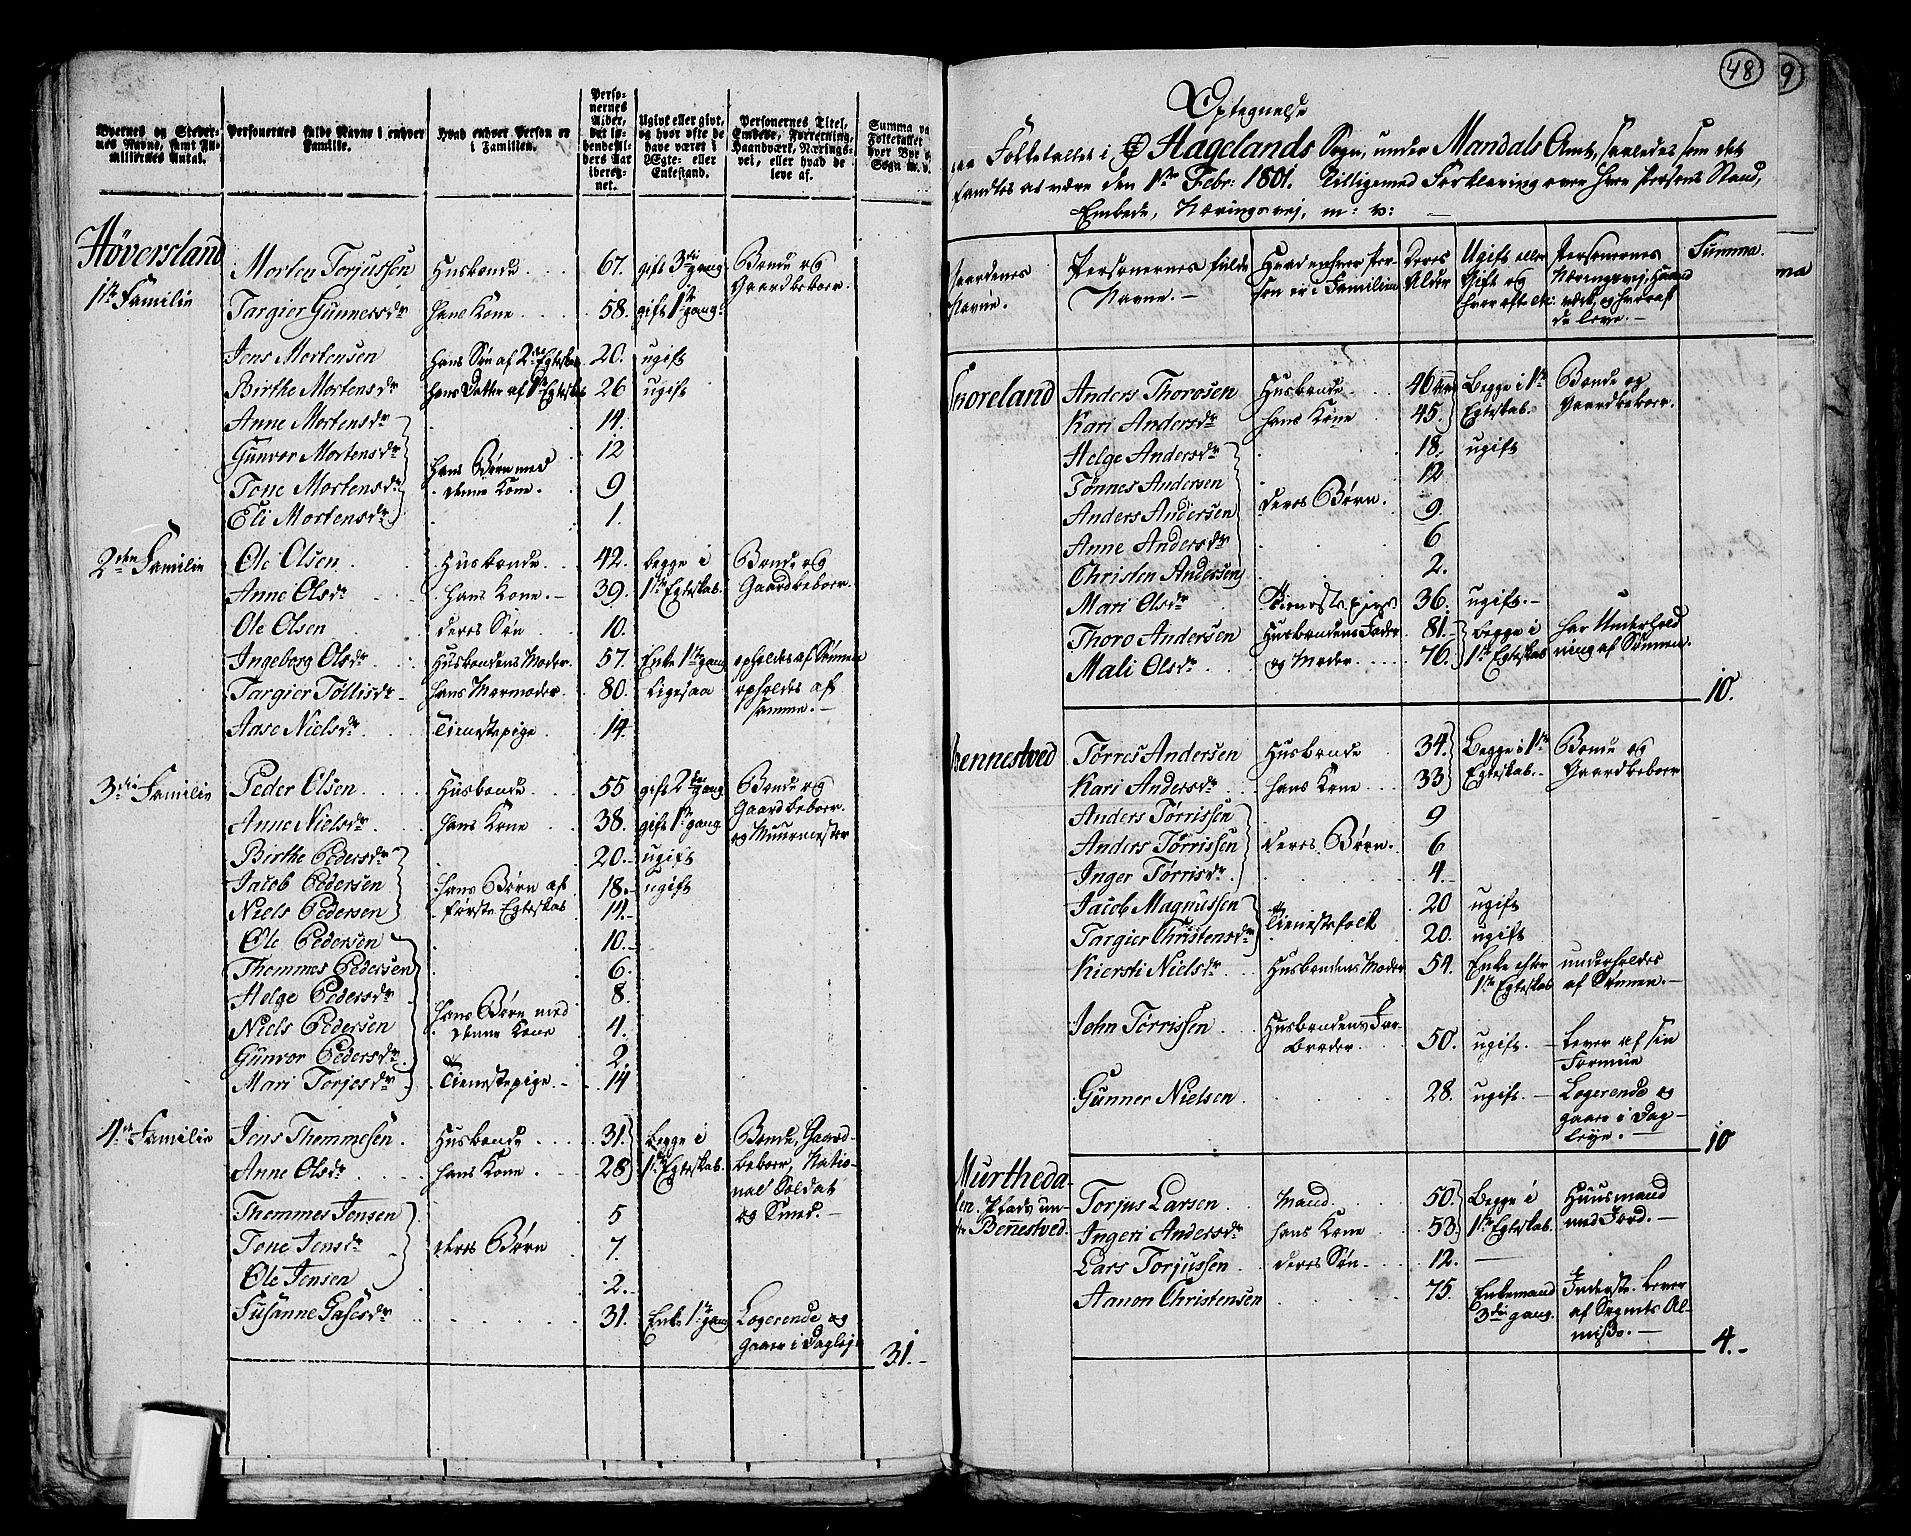 Byernes og Steder-
nes Navne, samt Fa-
miliernes Antal.
Personernes fulde Navne i enhver
Familie.
Hvad enhver Person er
i Familien.
Perso-
nernes
Alder,
det lø-
bende Al-
ders Aar
ibereg-
net.
Ugivt eller givt,
og hvor ofte de
have været i
Ægte- eller
Enkestand.
Personernes Titel,
Embede, Forretning,
Haandværk, Nærings-
vei, eller hvad de
leve af.
Summa
Folketallet
Høversland
1te Familie
Morten Torjussen Husbonde 67. gift 3die gang Bonde og
Gaardbeboer.
Targier Gunnersdr hans Kone 58. gift 1te gang.
Jens Mortensen hans Søn af 2det Egteskab 20. ugift
Birthe Mortensdr hans Datter af 1te Egteskab 26 ugift
Anne Mortensdr 14.
Gunvor Mortensdr hans Børn med 12
Tone Mortensdr denne Kone. 9
Eli Mortensdr 1.
2den Familie
Ole Olsen Husbonde 42. begge i Bonde og
Anne Olsdr hans Kone. 39. 1te Egteskab. Gaardbeboer.
Ole Olsen deres Søn 10.
Ingeborg Olsdr Husbondens Moder 57. Enke 1te gang opholdes af Sønnen
Targier Tøllisdr hans Mormoder 80. Ligesaa opholdes af
samme.
Aase Nielsdr Tienestepige 14.
3die Familie
Peder Olsen Husbonde 55 gift 2den gang Bonde og
Gaardbeboer
Anne Nielsdr hans Kone 38. gift 1te gang og Muurmester
Birthe Pedersdr 20. ugift
Jacob Pedersen hans Børn af 18. ugift
Niels Pedersen første Egteskab 14.
Ole Pedersen 10.
Themmes Pedersen 6.
Helge Pedersdr hans Børn med 8.
Niels Pedersen denne Kone 4.
Gunvor Pedersdr 2.
Mari Torjesdr Tienestepige 14
4de Familie
Jens Themmesen Husbonde 31. begge i Bonde, Gaard-
Anne Olsdr hans Kone 28 1te Egteskab. beboer, Natio-
nal Soldat
Themmes Jensen 5 og Smed.
Tone Jensdr deres Børn 7.
Ole Jensen 2.
Susanne Gasesdr 31. Enke 1te gang Logerende og
gaaer i Dagleje
31.
48
9
Optegnelse
Folketallet i Hægelands Sogn, under Mandals Amt, saaledes som det
fandtes at være den 1te Febr: 1801. tilligemed Forklaring over hver Persons Stand,
Embede, Næringsvej, m: v:
Gaardenes
Navne.
Personernes fulde
Navne.
Hvad enhver Per-
son er i Familien
Deres
Alder
Ugift eller
Gift og
hvor ofte etc:
Personernes
Næringsvej, Haand
værk, og hvoraf
de leve.
Summa.
Anders Thorosen Husbonde 46 Begge i 1te Bonde og
Kari Andersdr hans Kone 45. Egteskab. Gaardbeboer.
Helge Andersdr 18. ugift
Tønnes Andersen 12
Anders Andersen deres Børn. 9.
Anne Andersdr 6
Christen Andersen 2.
Mari Olsdr Tienestepige 36. ugift.
Thoro Andersen Husbondens Fader 81. begge i har Underhold
Mali Olsdr og Moder 76. 1te Egteskab ning af Sønnen.
10.
Bennestved
Tørres Andersen Husbonde 34. Begge i 1te Bonde og
Kari Andersdr hans Kone 33 Egteskab. Gaardbeboer
Anders Tørrissen 9
Anders Tørrissen deres Børn. 6
Inger Tørrisdr 4.
Jacob Magnussen Tienestefolk 20 ugift
Targier Christensdr 20. ugift
Kiersti Nielsdr Husbondens Moder 54. Enke efter underholdes
1te Egteskab af Sønnen.
John Tørrissen Husbondens Far-
broder 50. ugift. Lever af sin
Formue
Gunner Nielsen 28. ugift. Logerende og
gaaer i Dag-
leje.
10
Murtheda-
len, Plads un-
der Bennestved.
Torjus Larsen Mand 50. Begge i Huusmand
Ingeri Andersdr hans Kone 53 1te Egteskab. med Jord.
Lars Torjussen deres Søn 12.
Aanon Christensen 75. Enkemand Inderste. Lever
3die gang. af Sognets Al-
misse.
4.